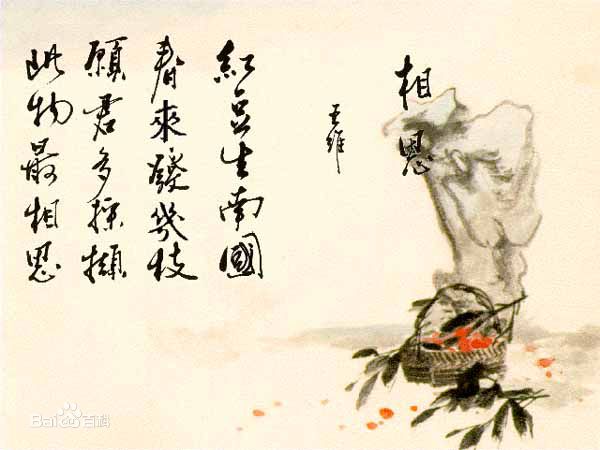 相思
王維
紅豆生南國
春來發幾枝
願君多採擷
此物最相思
Bai百科